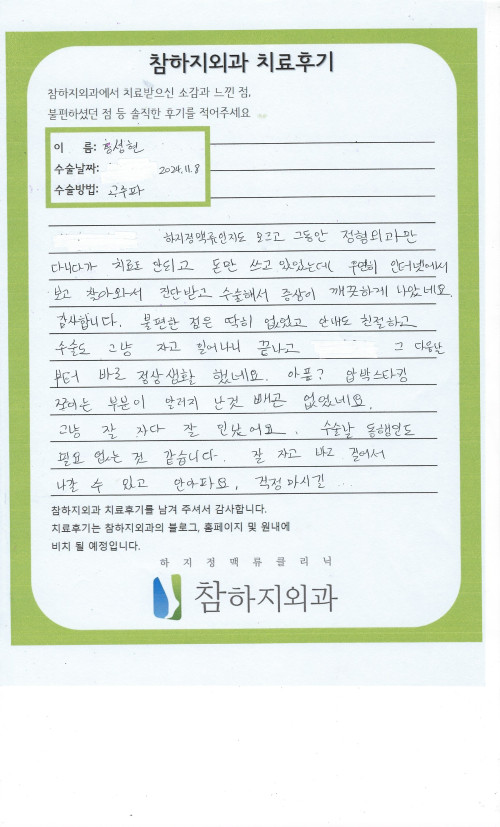 참하지외과 치료후기
참하지외과에서 치료받으신 소감과 느낀 점,
불편하셨던 점 등 솔직한 후기를 적어주세요
이 름: 홍성현
수술날짜: 2024.11.8
수술방법: 고주파
하지정맥류인지도 모르고 그동안 정형외과만
다니다가 치료도 안되고 돈만 쓰고 있었는데 우연히 인터넷에서
보고 찾아와서 진단받고 수술해서 증상이 깨끗하게 나았네요.
감사합니다. 불편한 점은 딱히 없었고 안내도 친절하고
수술도 그냥 자고 일어나니 끝나고 그 다음날
부터 바로 정상생활 했네요. 아픔? 압박스타킹
조이는 부분이 알러지 난것 빼곤 없었네요.
그냥 잘 자다 잘 인났어요. 수술날 동행인도
필요 없는 것 같습니다. 잘 자고 바로 걸어서
나갈 수 있고 안아파요, 걱정마시길 ...
참하지외과 치료후기를 남겨 주셔서 감사합니다.
치료후기는 참하지외과의 블로그, 홈페이지 및 원내에
비치 될 예정입니다.
하지정맥류클리닉
참하지외과